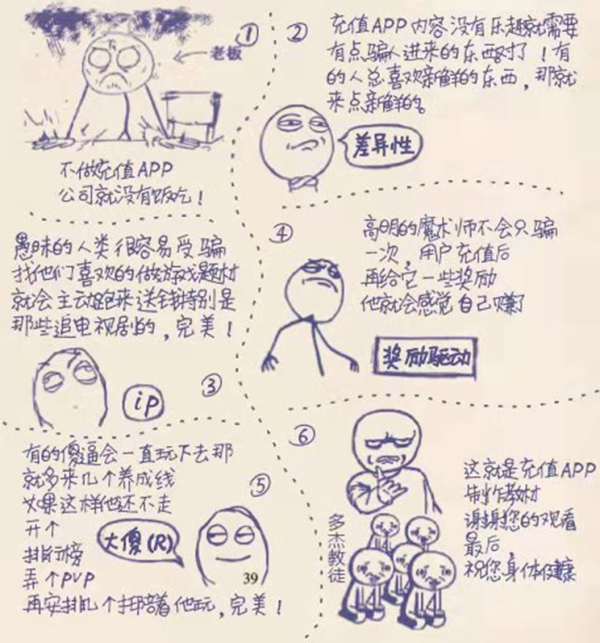 ①
老板
不做充值APP
公司就没有饭吃！
②
充值APP内容没有乐趣就需要
有点骗人进来的东西对了！有
的人总喜欢新鲜的东西，那就
来点新鲜的。
差异性
愚昧的人类很容易受骗
找他们喜欢的做游戏题材
就会主动跑来送钱特别是
那些追电视剧的，完美！
ip
③
④
高明的魔术师不会只骗
一次，用户充值后
再给它一些奖励
他就会感觉自己赚了
奖励驱动
有的傻逼会一直玩下去那
就多来几个养成线
如果这样他还不走
开个
排行榜
弄个PVP
再安排几个托陪着他玩，完美！
⑤
大傻(R)
39
⑥
这就是充值APP
制作教材
谢谢您的观看
最后，
祝您身体健康
多杰教徒